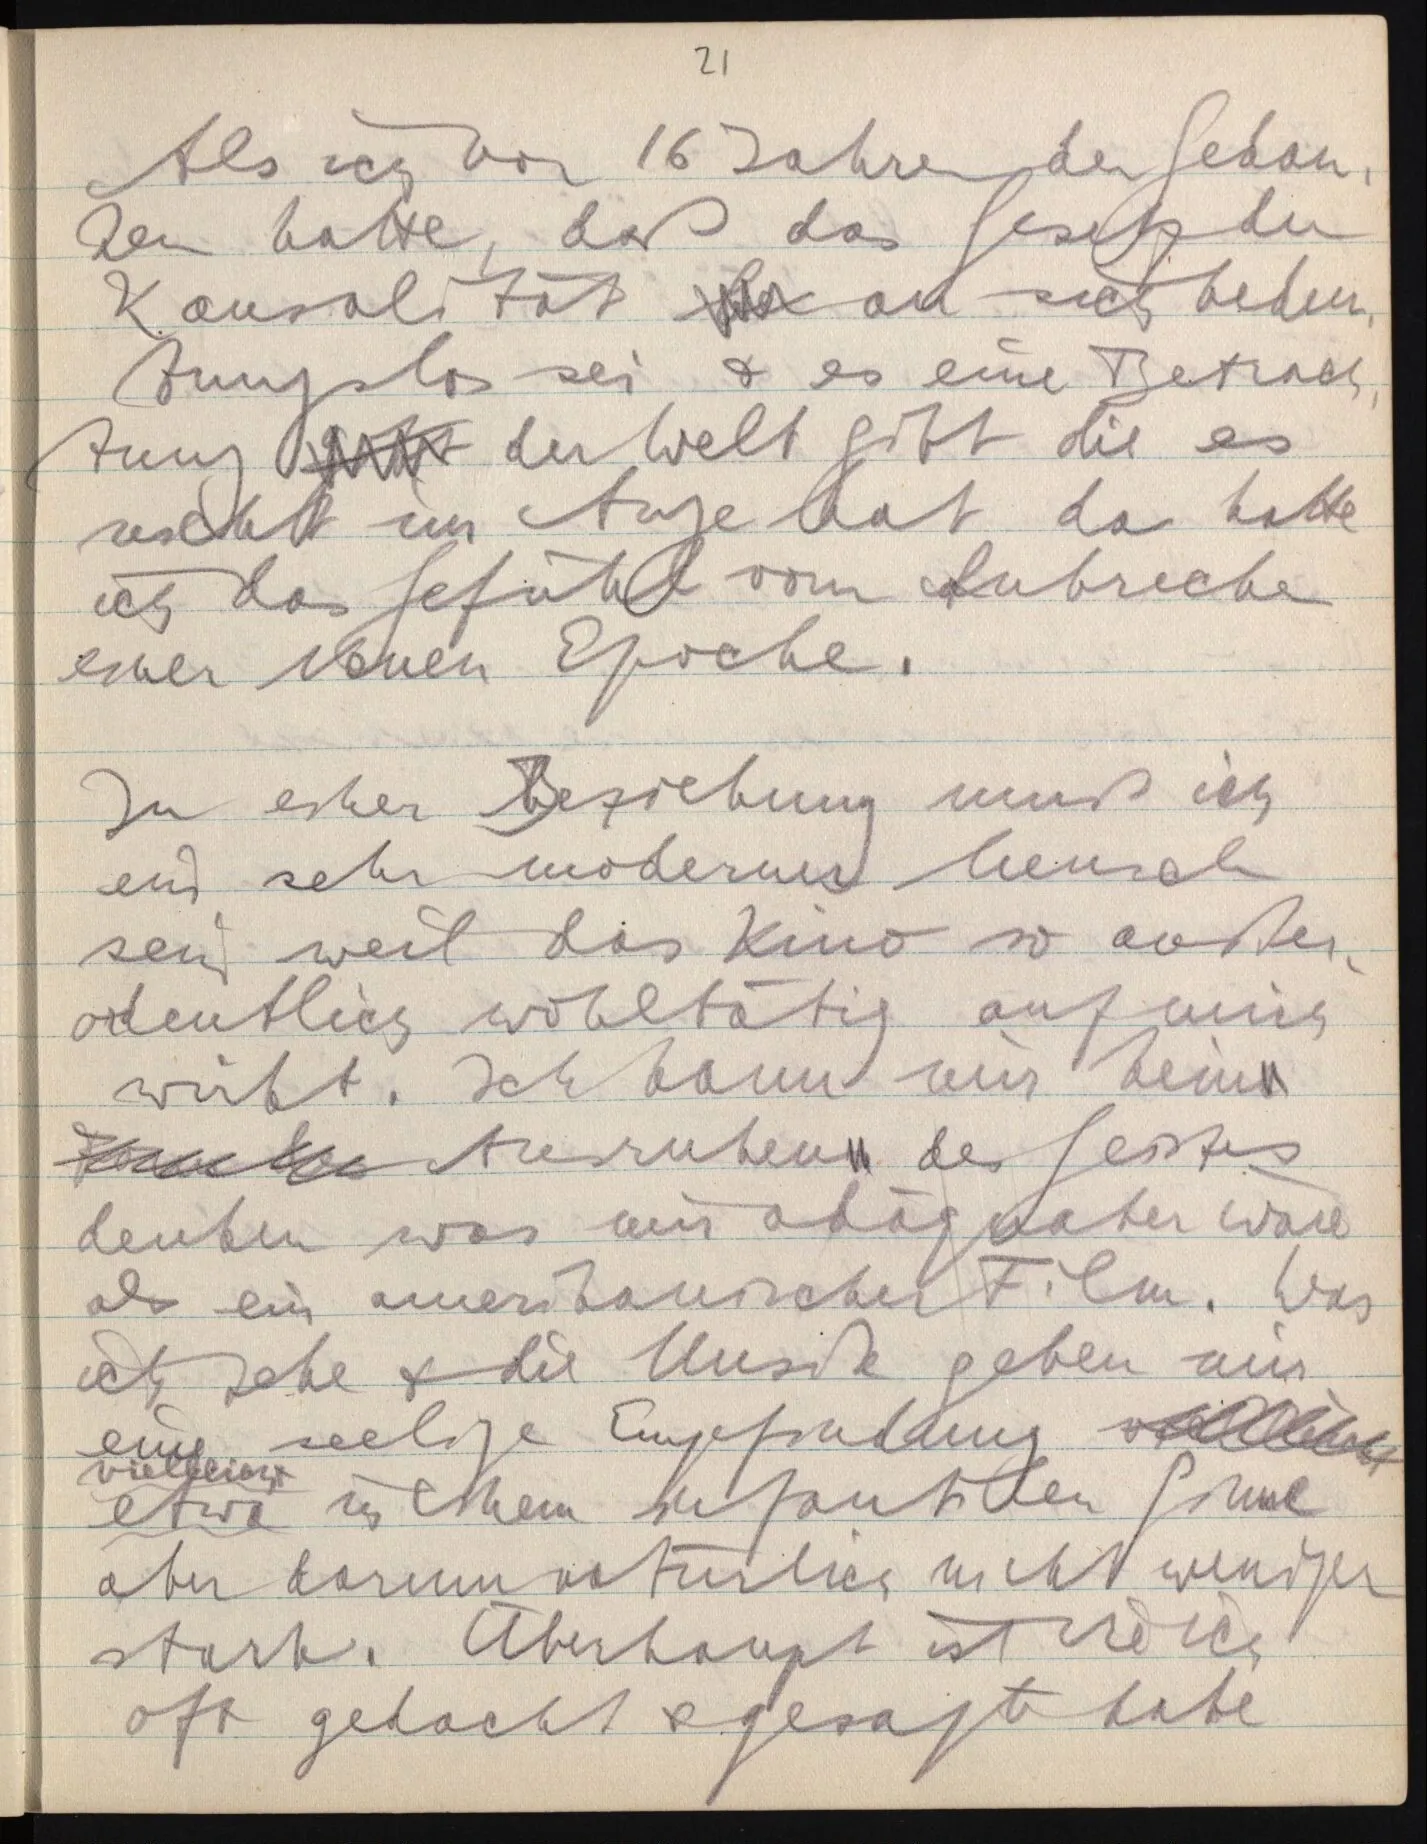 21
Als ich vor 16 Jahren den Gedan-
ken hatte, daß das Gesetz der
Kausalität an sich bedeu-
tungslos sei & es eine Betrach-
tung der Welt gibt die es
nicht im Auge hat da hatte
ich das Gefühl vom Anbreche
einer Neuen Epoche.
In einer Beziehung muß ich
ein sehr moderner Mensch
sein weil das Kino so außer-
odentlich wohltätig auf mich
wirkt. Ich kann mir kein
Ausruhen des Geistes
denken was mir adäquater wäre
als ein amerikanischer Film. Was
ich sehe & die Musik geben mir
eine seelige Empfindung
vielleicht
etwa in einem infantilen Sinne
aber darum natürlich nicht weniger
stark. Überhaupt ist wie ich
oft gedacht & gesagt habe